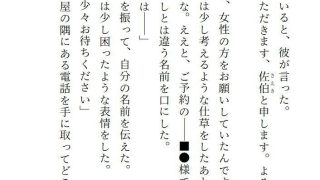 いると、彼が言った。
ただきます、佐伯と申します。よ
さえき
、女性の方をお願いしていたんでよ
は少し考えるような仕草をしたあと
な。ええと、ご予約の――■●様て
しとは違う名前を口にした。
は――」
を振って、自分の名前を伝えた。
は少し困ったような表情をした。
少々お待ちください」
屋の隅にある電話を手に取ってどこ